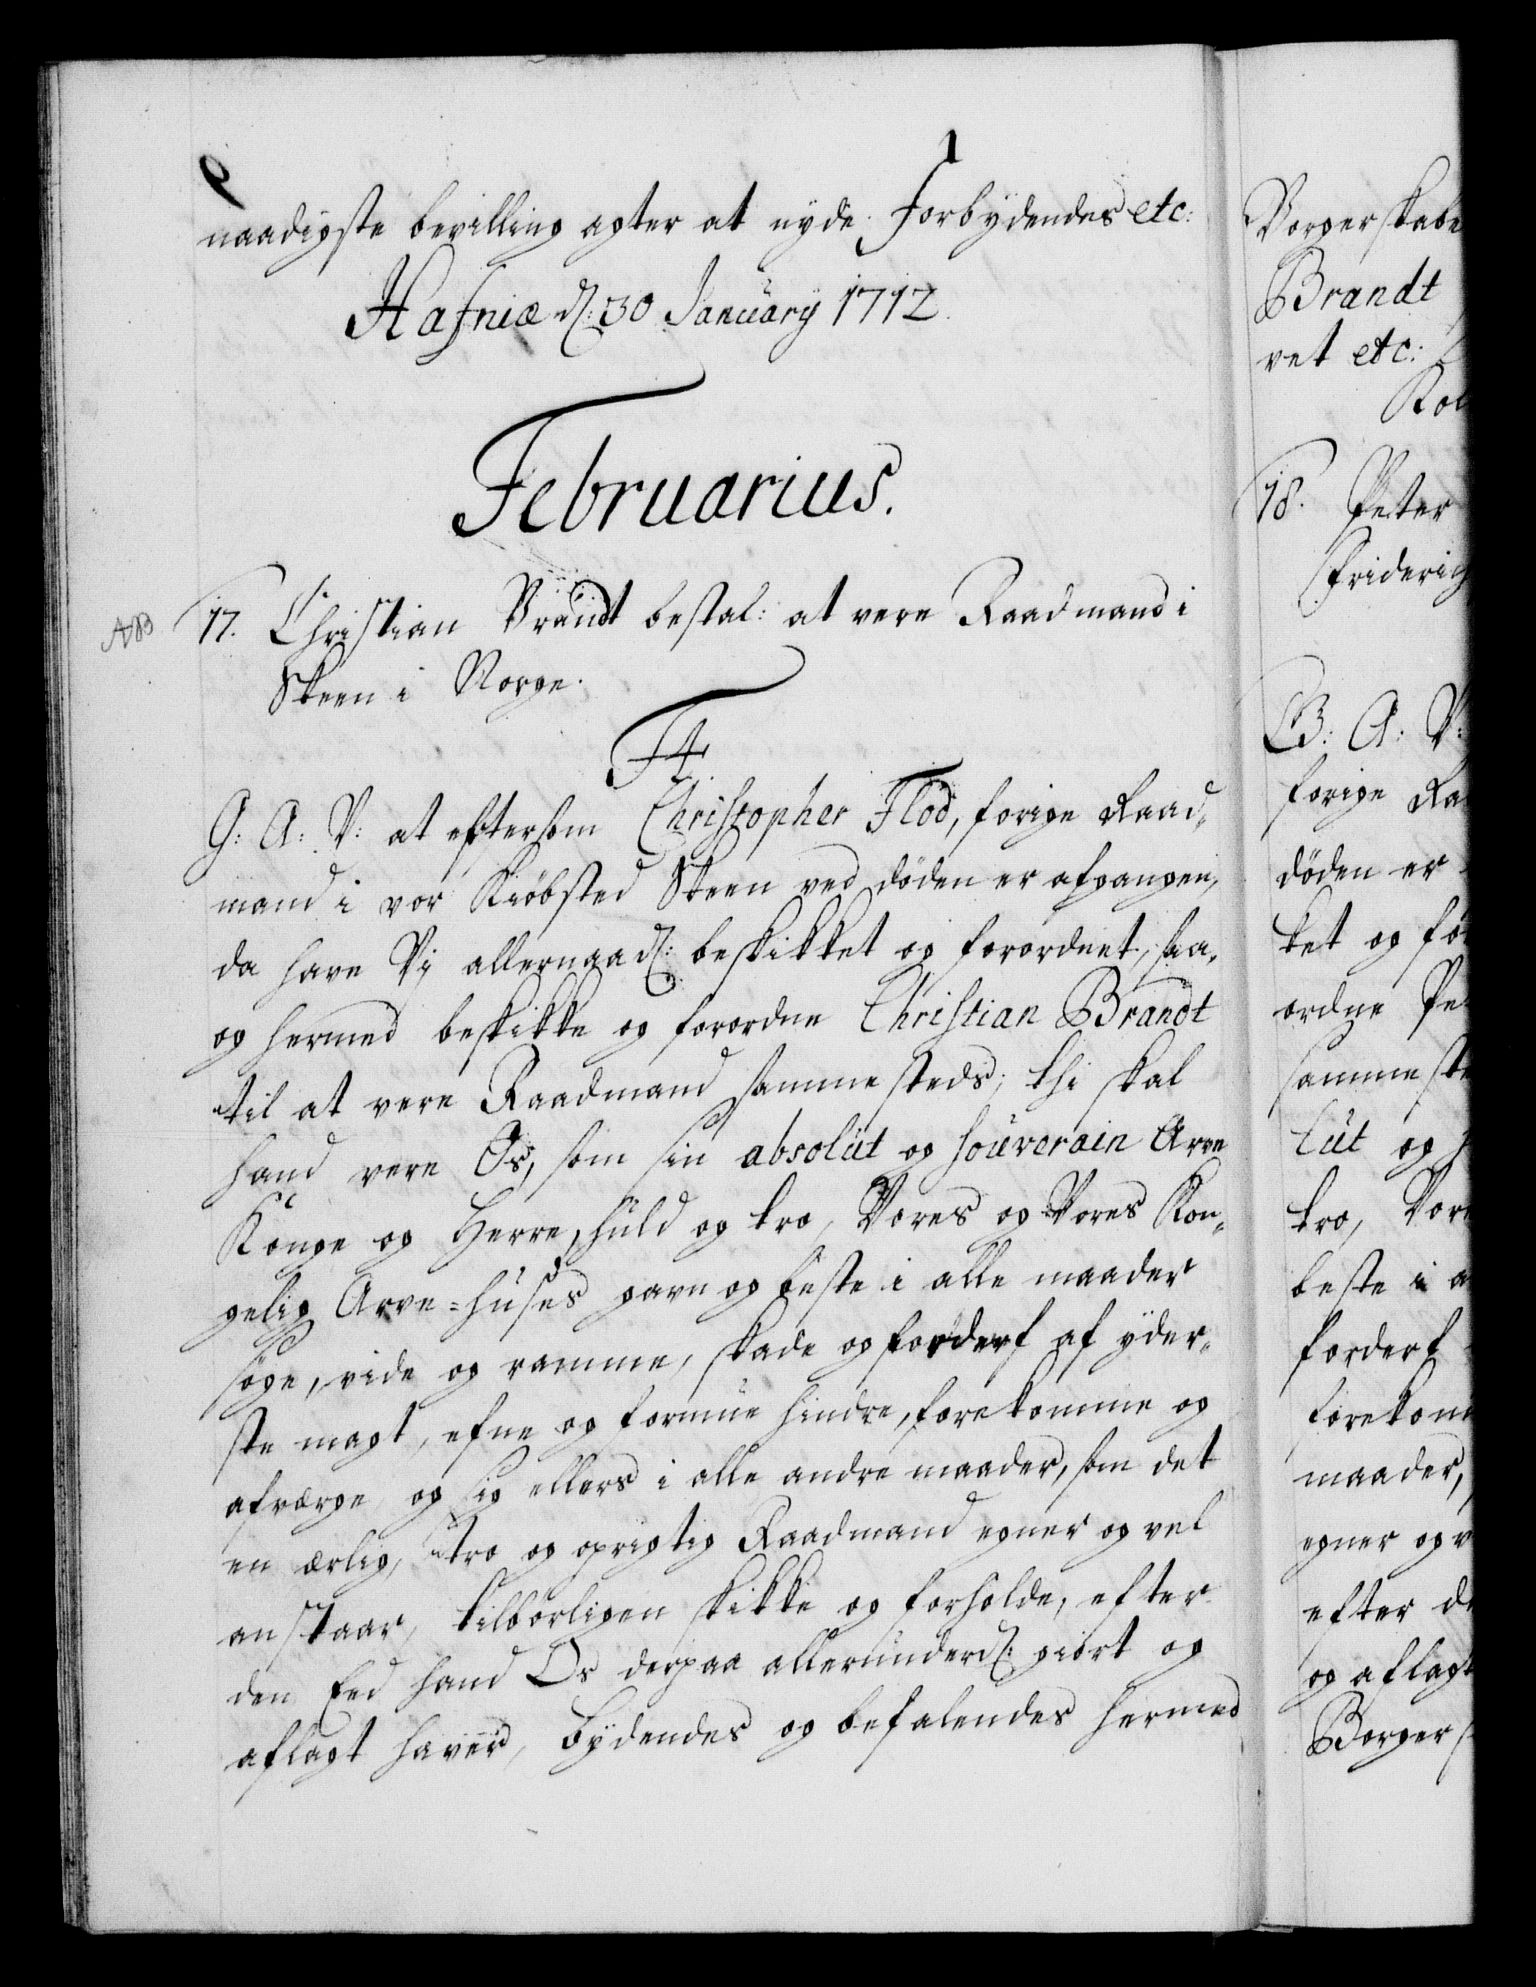 naadigste bevilling agter at nyde. Forbydendes etc:
Hafniæ d: 30 Januarÿ 1712.
Februarius.
AB
17. Christian Brandt bestal: at vere Raadmand i
Skeen i Norge.
F4
G: A: V: at eftersom Christopher Flod, forige Raad-
mand i vor Kiöbsted Skeen ved döden er afgangen,
da have Vi allernaad: beskikket og forordnet, saa,
og hermed beskikke og forordne Christian Brandt
til at vere Raadmand sammesteds; thi skal
hand vere Os, som sin absolut og souverain Arve
Konge og Herre, huld og tro, Vores og Vores Kon-
gelig Arve=huses gavn og beste i alle maader
söge, vide og ramme, skade og forderf af yder-
ste magt, efne og formue hindre, forekomme og
afværge og sig ellers i alle andre maader, som det
en ærlig, tro og oprigtig Raadmand egner og vel
anstaar, tilbörligen skikke og forholde, efter
den Eed hand Os derpaa allerunderd: giort og
aflagt haver, bydendes og befalendes hermed
Borgerskabe
Brandt
vet etc:
18. Peter
Friderich
G: A: V:
forige Ra
döden er
ket og for
ordne Pe
samme ste
lut og
tro, Vor
beste i a
forderf
forekom
maader,
egner og v
efter de
og aflagt
Borger